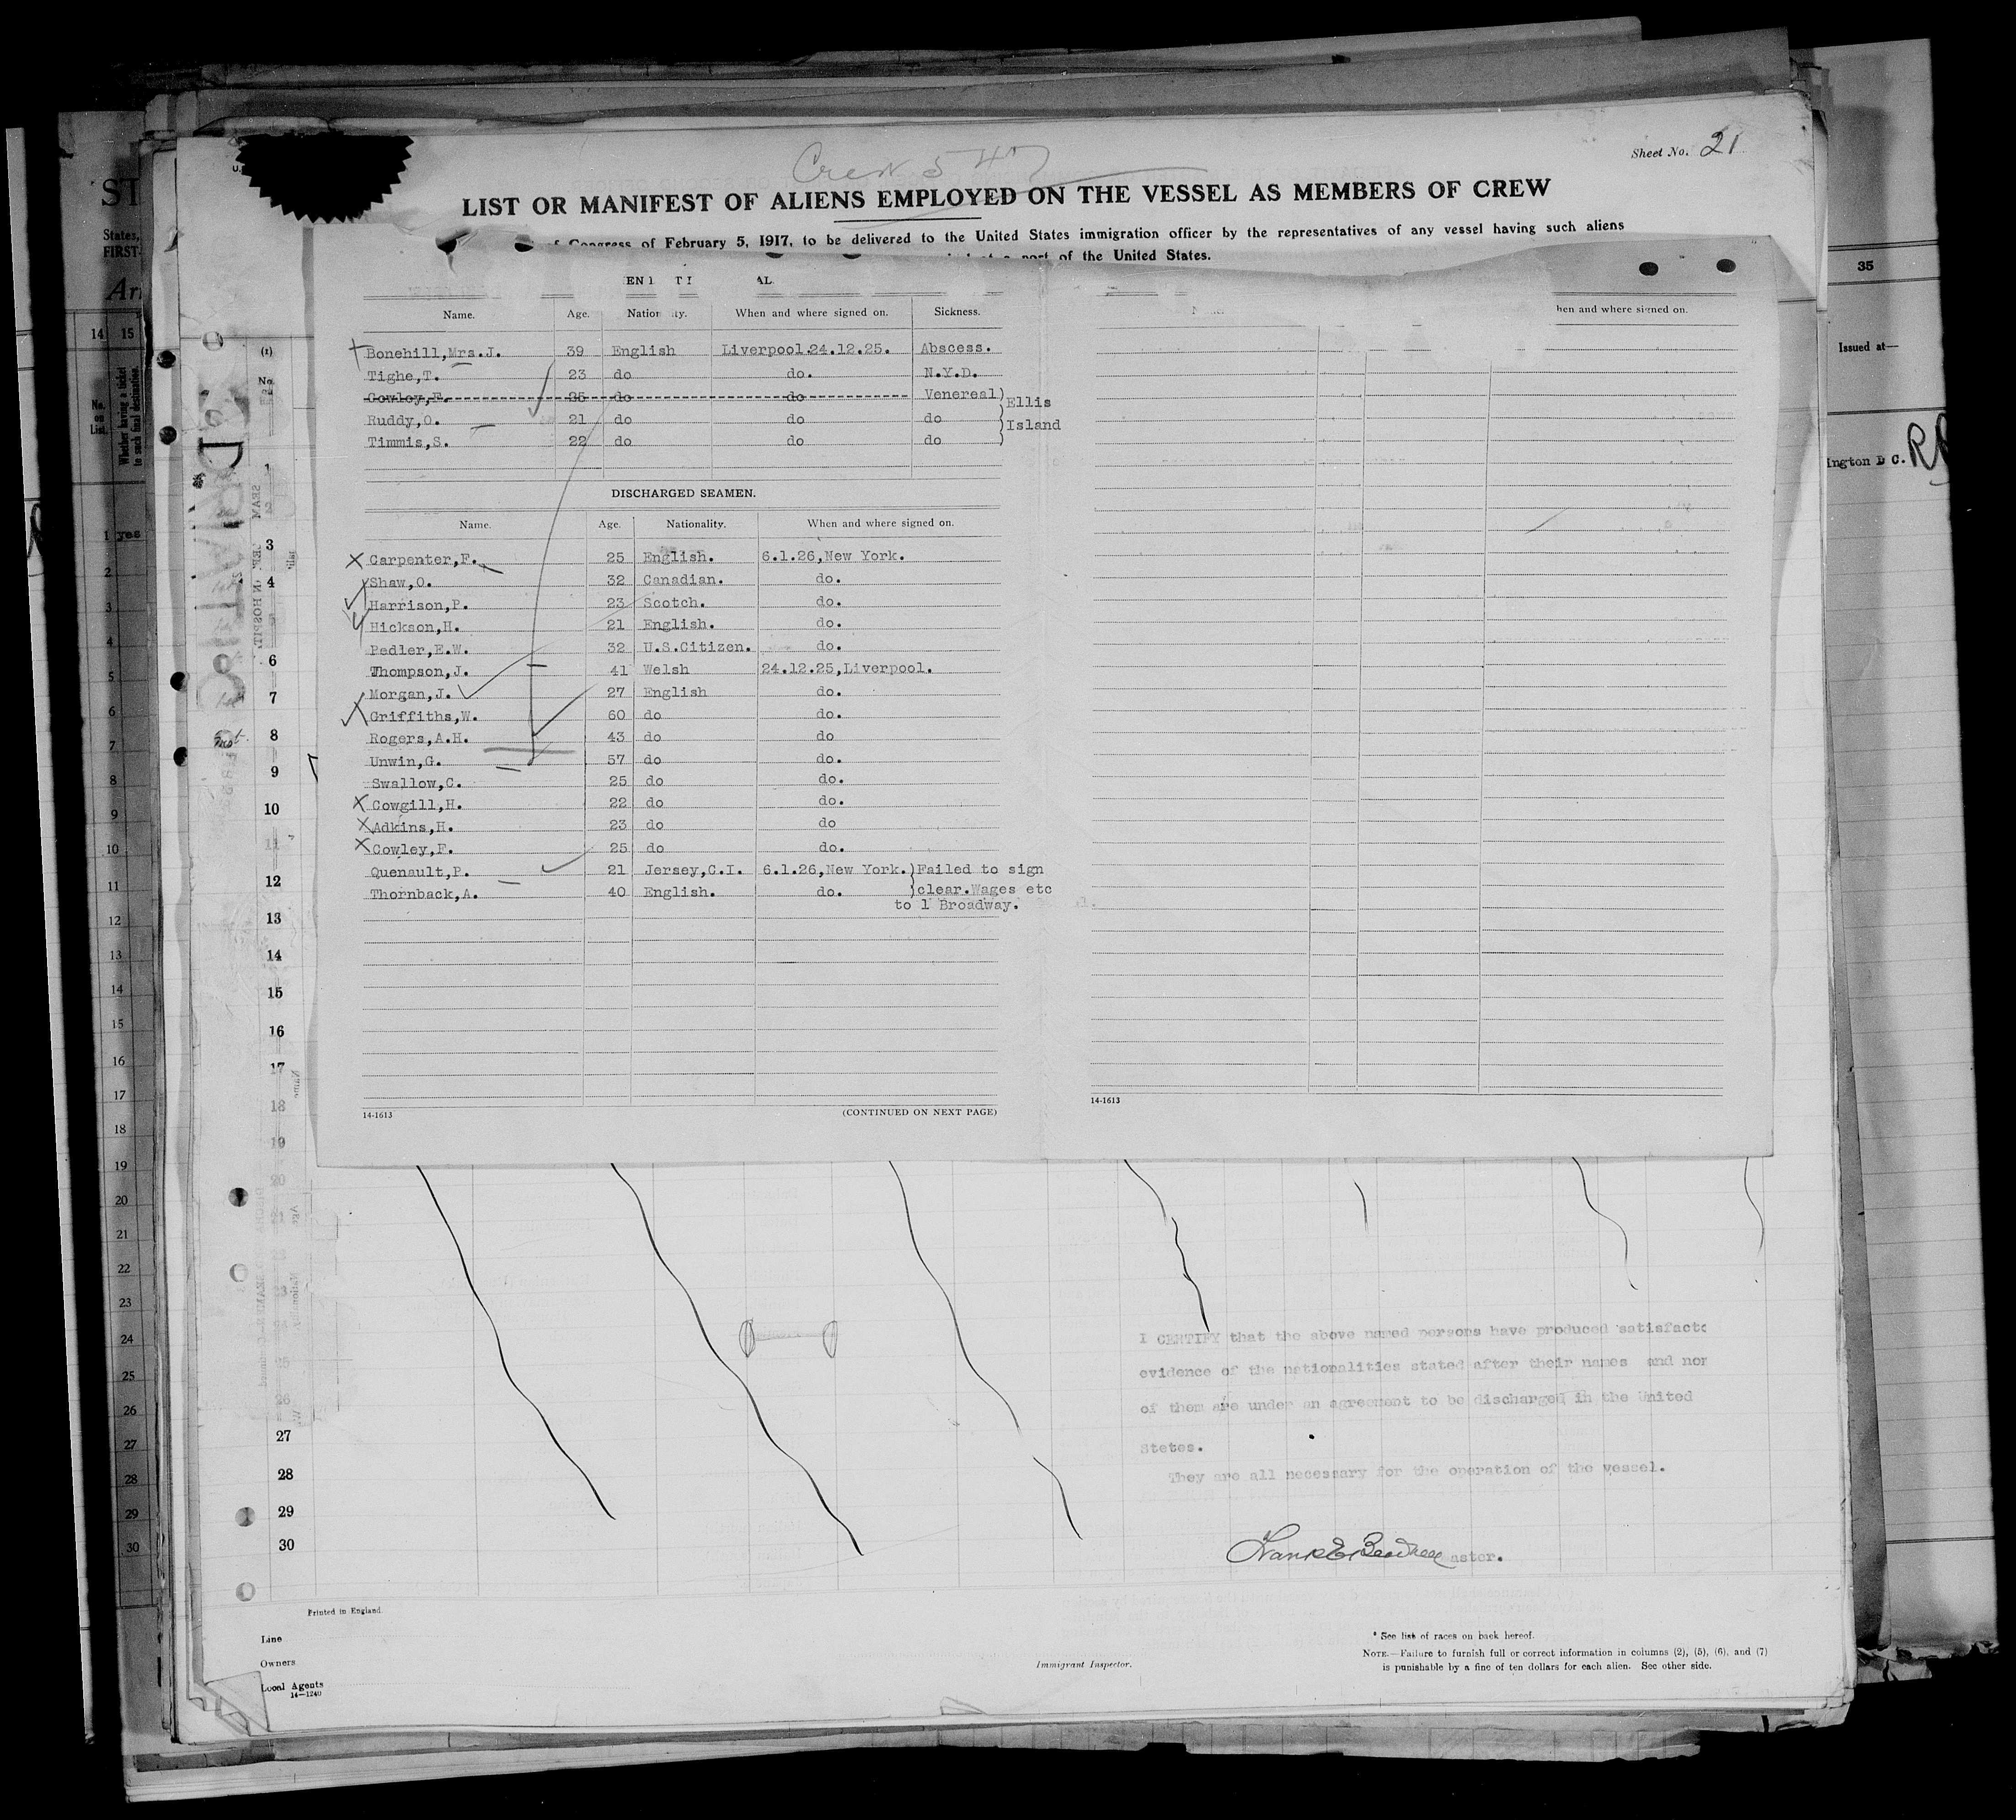 Sheet No. 21
Crew 547
LIST OR MANIFEST OF ALIENS EMPLOYED ON THE VESSEL AS MEMBERS OF CREW
of Congress of February 5, 1917, to be delivered to the United States immigration officer by the representatives of any vessel having such aliens
port of the United States.
Name. Age. Nationality. When and where signed on. Sickness.
Bonehill,Mrs.J. 39 English Liverpool.24.12.25. Abscess.
Tighe,T. 23 do do. N.Y.D.
Cowley,F. 25 do do Venereal) Ellis
Ruddy,O. 21 do do do ) Island
Timmis,S. 22 do do do )
DISCHARGED SEAMEN.
Name. Age. Nationality. When and where signed on.
Carpenter,F. 25 English. 6.1.26,New York.
Shaw,O. 32 Canadian. do.
Harrison,P. 23 Scotch. do.
Hickson,H. 21 English. do.
Pedler,E.W. 32 U.S.Citizen. do.
Thompson,J. 41 Welsh 24.12.25,Liverpool.
Morgan,J. 27 English do.
Griffiths,W. 60 do do.
Rogers,A.H. 43 do do
Unwin,G. 57 do do.
Swallow,C. 25 do do.
Cowgill,H. 22 do do.
Adkins,H. 23 do do
Cowley,F. 25 do do.
Quenault,P. 21 Jersey,C.I. 6.1.26,New York.)Failed to sign
Thornback,A. 40 English. do. )clear.Wages etc
to 1 Broadway.
14-1613 (CONTINUED ON NEXT PAGE)
hen and where signed on.
14-1613
(1)
No.
1
3
4
6
7
8
9
10
11
12
13
14
15
16
17
18
19
20
26
27
28
29
30
I CERTIFY that the above named persons have produced satisfacto
evidence of the nationalities stated after their names and non
of them are under an agreement to be discharged in the United
States.
They are all necessary for the operation of the vessel.
aster.
Printed in England.
Line
Owners
Local Agents
14—1240
Immigrant Inspector.
* See list of races on back hereof.
NOTE.—Failure to furnish full or correct information in columns (2), (5), (6), and (7)
is punishable by a fine of ten dollars for each alien. See other side.
ST
States,
FIRST-
Arr
14 15
No. on List.
Whether having a ticket to such final destination.
1 yes
2
3
4
5
6
7
8
9
10
11
12
13
14
15
16
17
18
19
20
21
22
23
24
25
26
27
28
29
30
35
Issued at—
ington D C.